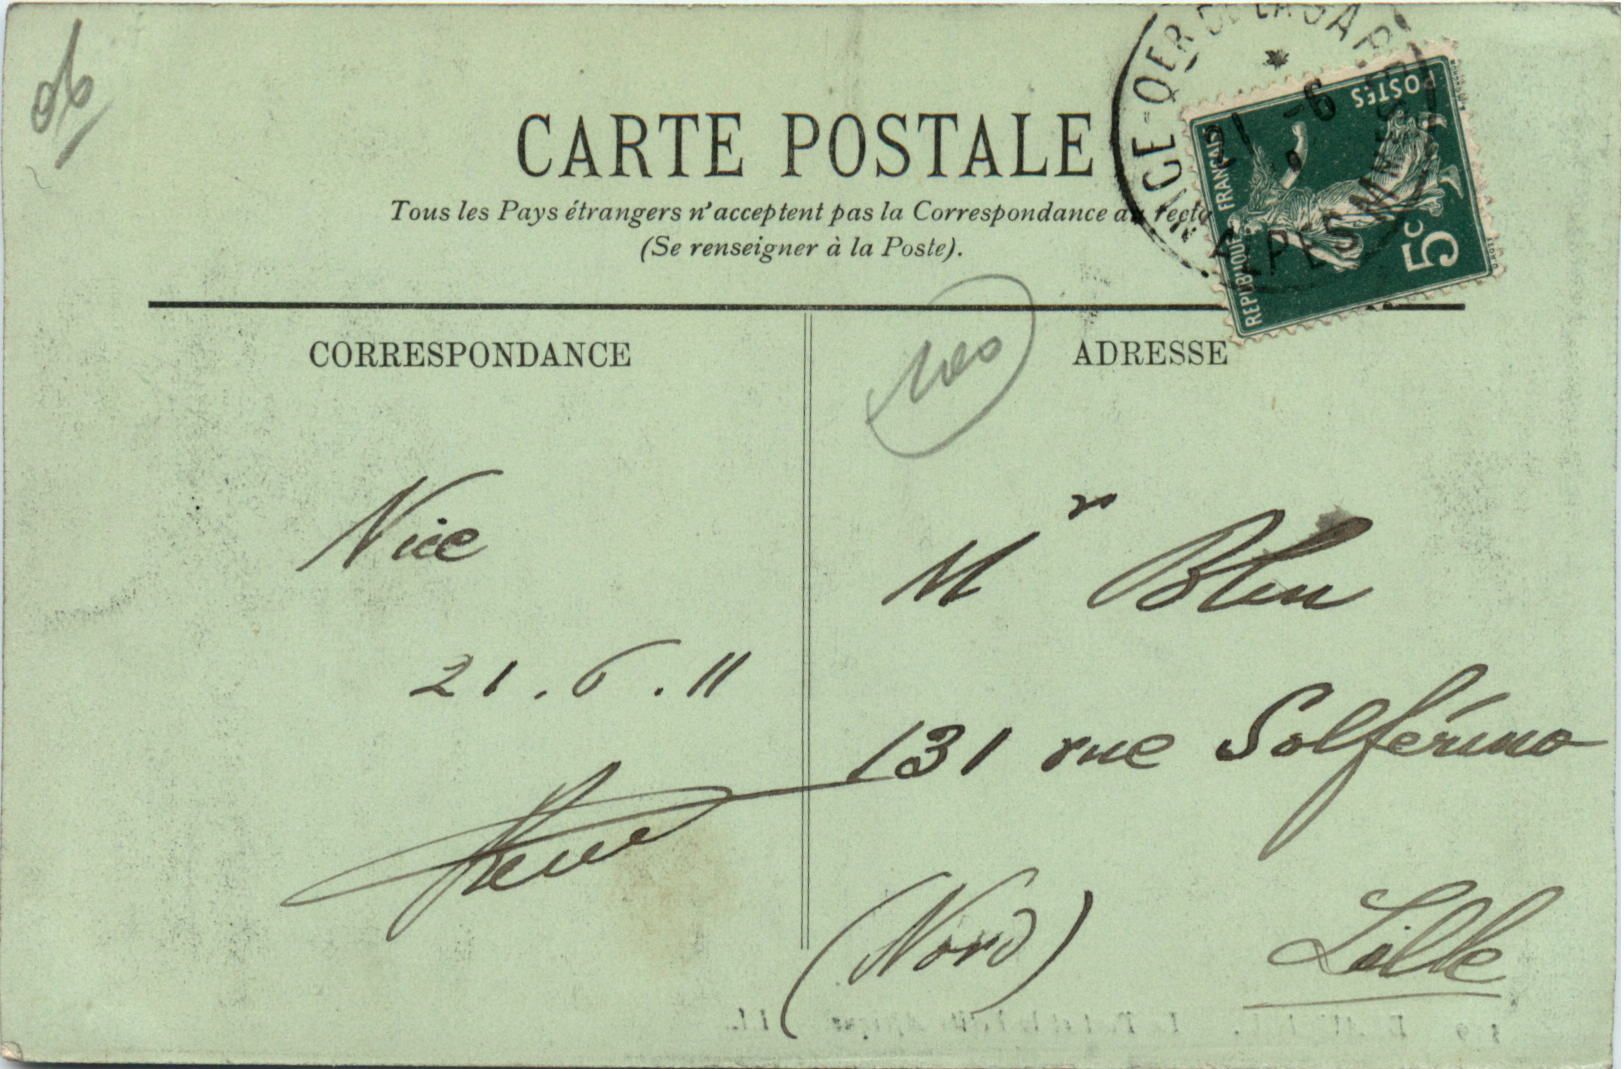 06
CARTE POSTALE
Tous les Pays étrangers n'acceptent pas la Correspondance au recto
(Se renseigner à la Poste).
NICE - QER DE LA GARE
21 -6
ALPES MMES
POSTES
REPUBLIQUE FRANÇAISE
5c
CORRESPONDANCE
ADRESSE
Nice
21.6.11
Mr Bleu
131 rue Solférino
(Nord)
Lille